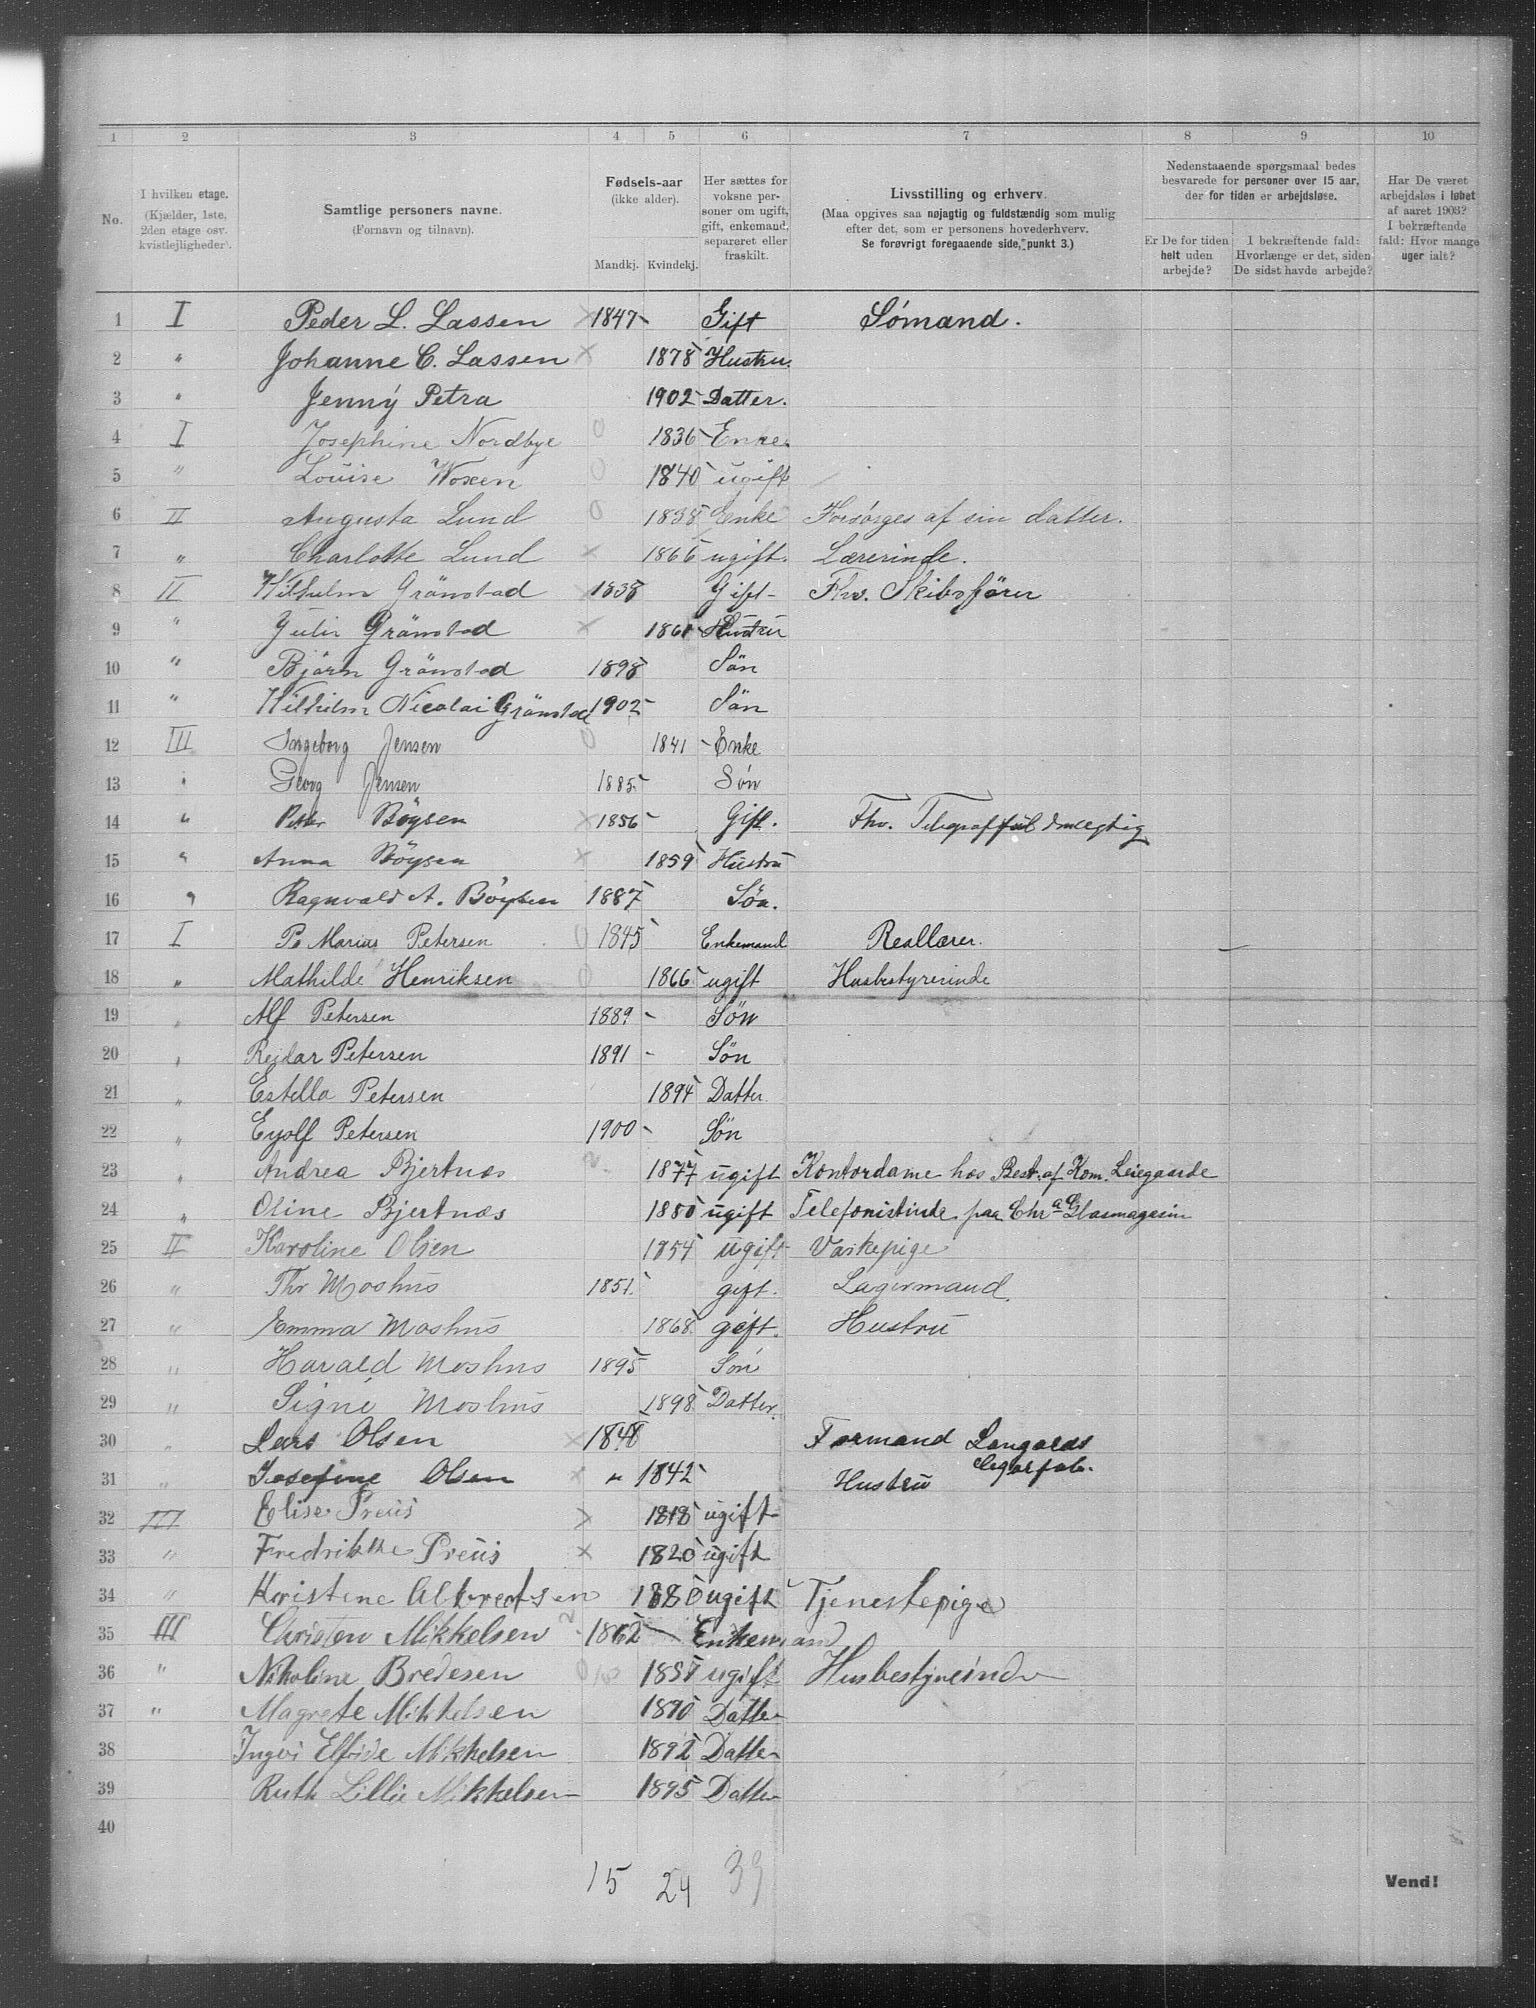 1 2 3 4 5 6 7 8 9 10
No.
I hvilken etage.
(Kjælder, 1ste,
2den etage osv.
kvistlejligheder).
Samtlige personers navne.
(Fornavn og tilnavn).
Fødsels-aar
(ikke alder).
Mandkj. Kvindekj.
Her sættes for
voksne per-
soner om ugift,
gift, enkemand,
separeret eller
fraskilt.
Livsstilling og erhverv.
(Maa opgives saa nøjagtig og fuldstændig som mulig
efter det, som er personens hovederhverv.
Se forøvrigt foregaaende side, punkt 3.)
Nedenstaaende spørgsmaal bedes
besvarede for personer over 15 aar,
der for tiden er arbejdsløse.
Er De for tiden
helt uden
arbejde?
I bekræftende fald:
Hvorlænge er det, siden
De sidst havde arbejde?
Har De været
arbejdsløs i løbet
af aaret 1903?
I bekræftende
fald: Hvor mange
uger ialt?
1 I Peder L. Lassen × 1847 - Gift Sómand.
2 " Johanne C. Lassen × 1878 Hustru.
3 " Jenny Petra 1902 - Datter.
4 I Josephine Nordbye 0 1836 - Enke.
5 " Louise Woxen 0 1840 - ugift
6 II Augusta Lund 0 1838 Enke Forsörges af sin datter.
7 " Charlotte Lund × 1866 ugift. Lærerinde.
8 II Wilhelm Grönstad × 1838 Gift - Fhv. Skibsförer
9 " Julie Grönstad × 1861 - Hustru
10 " Björn Grönstad 1898 Sön
11 " Wilhelm Nicolai Grönstad 1902 - Sön
12 III Ingeborg Jensen 0 1841 - Enke
13 " Georg Jensen 1885 - Søn
14 " Peter Böysen × 1856 - Gift. Fhv. Telegraffuldmægtig
15 " Anna Böysen × 1859 Hustru
16 " Ragnvald A. Böysen 1887 Søn.
17 I P. Marius Petersen 0 1845 Enkemand Reallærer.
18 " Mathilde Henriksen 0 1866 ugift Husbestyrerinde
19 " Alf Petersen 1889 - Sön
20 " Reidar Petersen 1891 - Søn
21 " Estella Petersen 1894 Datter
22 " Eyolf Petersen 1900 - Sön
23 " Andrea Bjertnæs 2. 1877 ugift Kontordame hos Best. af Kom. Leiegaarde
24 " Oline Bjertnæs 1880 ugift Telefonistinde paa Chr.a Glasmagasin
25 II Karoline Olsen 1854 ugift Vaskepige
26 " Thr Moshus 1851. gift. Lagermand.
27 " Emma Moshus 1868. gift. Hustru
28 " Harald Moshus 1895 Søn
29 " Signe Moshus 1898. Datter.
30 " Lars Olsen × 1848 Formand Langaards
Cigarfab.
31 " Josefine Olsen × " 1842 - Hustru
32 III Elise Preus × 1818 ugift
33 " Fredrikke Preus × 1820 ugift
34 " Kristine Albretsen 1880 ugift Tjenestepige
35 III Christen Mikkelsen 2 1862 - Enkemand
36 " Nikoline Bredesen 0 1857 ugift Husbestyrerinde
37 " Magrete Mikkelsen 1890 Datter
38 Ingvi Elfride Mikkelsen 1892 Datter
39 Ruth Lillie Mikkelsen 1895 Datter
40
15 24 39
Vend!